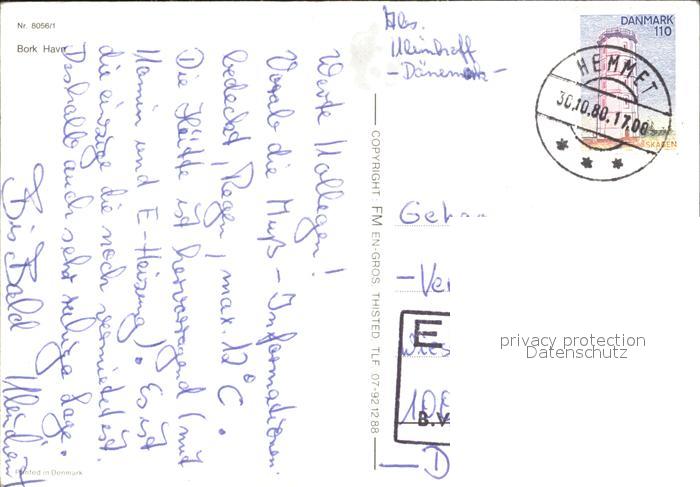 Nr. 8056/1
Bork Havn
Werte Kollegen!
Vorab die Muß-Informationen.
bedeckt, Regen, max. 12°C.
Die Hütte ist hervorragend (mit
Kamin und E-Heizung). Es ist
die einzige die noch vermietet ist.
Deshalb auch sehr ruhige Lage.
Bis Bald
Printed in Denmark
COPYRIGHT: FM EN-GROS THISTED TLF 07-92 12 88
Abs.
-Dänemark-
DANMARK
110
SKAGEN
HEMMET
30.10.80.17.00
-Ver
E
B.V
privacy protection
Datenschutz
-D